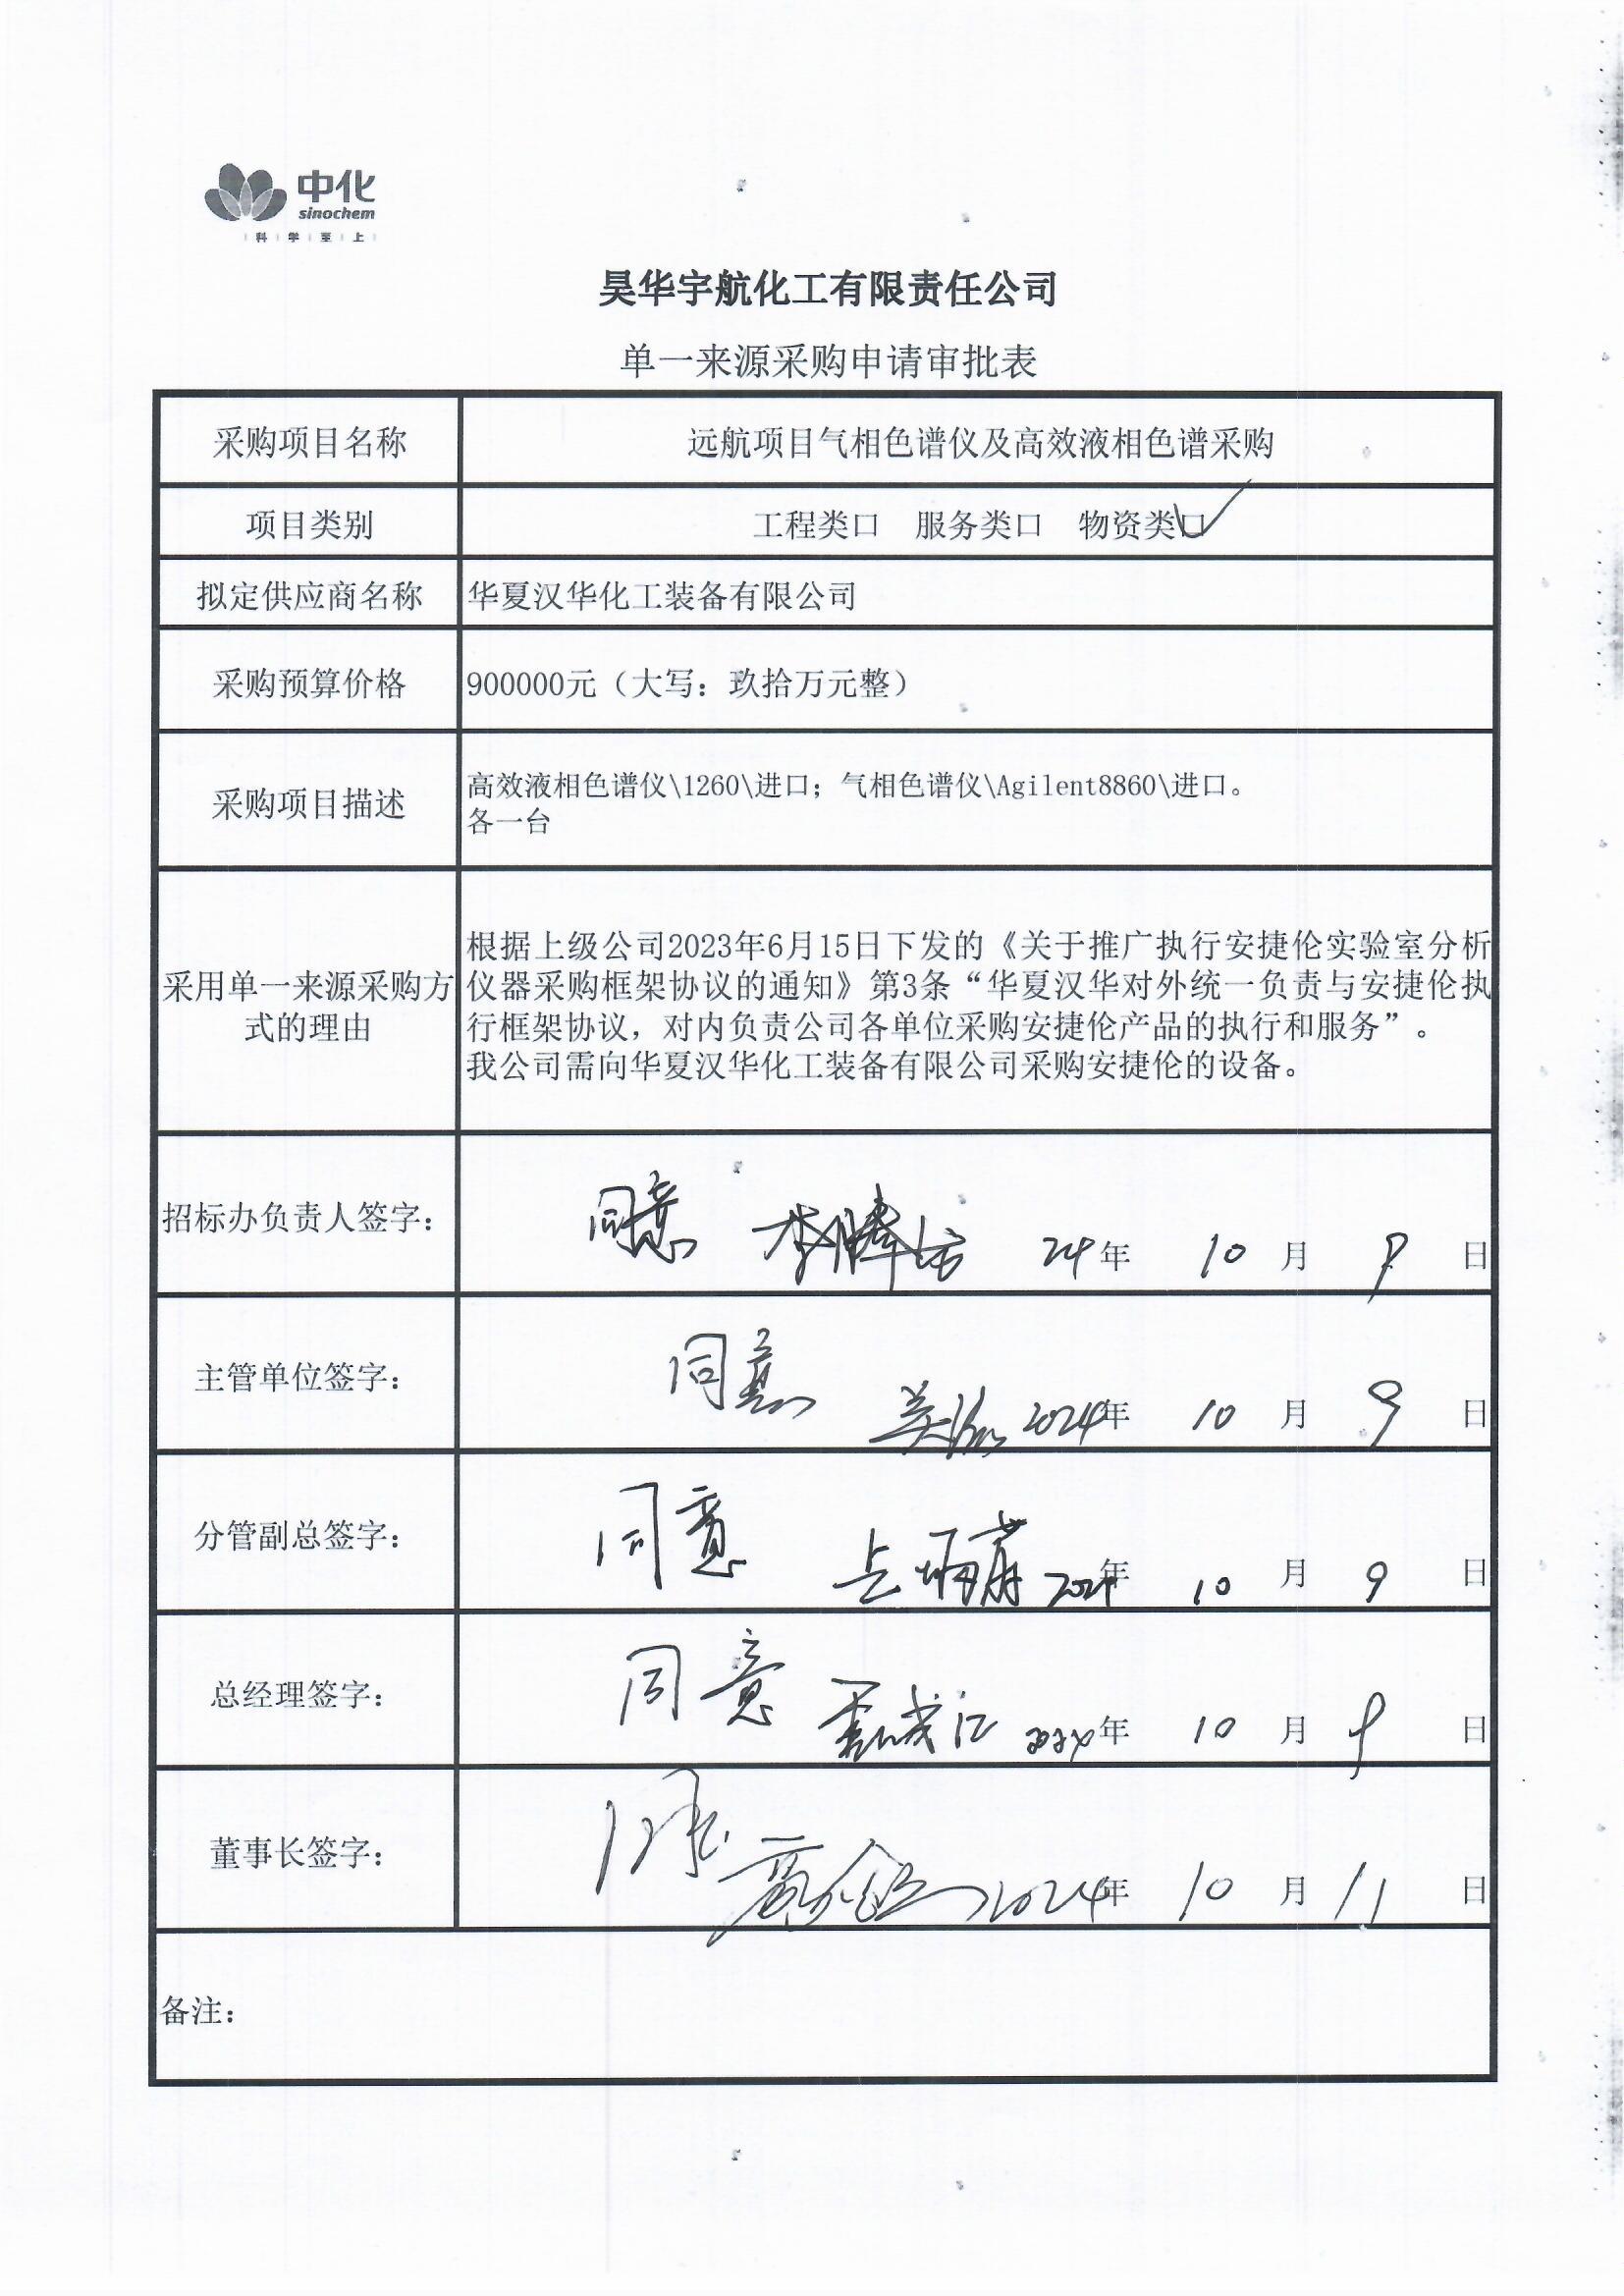 中化
sinochem
科学至上
昊华宇航化工有限责任公司
单一来源采购申请审批表
采购项目名称 远航项目气相色谱仪及高效液相色谱采购
项目类别 工程类口 服务类口 物资类口✓
拟定供应商名称 华夏汉华化工装备有限公司
采购预算价格 900000元（大写：玖拾万元整）
采购项目描述 高效液相色谱仪\1260\进口；气相色谱仪\Agilent8860\进口。
各一台
采用单一来源采购方式的理由
根据上级公司2023年6月15日下发的《关于推广执行安捷伦实验室分析
仪器采购框架协议的通知》第3条“华夏汉华对外统一负责与安捷伦执
行框架协议，对内负责公司各单位采购安捷伦产品的执行和服务”。
我公司需向华夏汉华化工装备有限公司采购安捷伦的设备。
招标办负责人签字： 同意 24年 10月 9日
主管单位签字： 同意 2024年 10月 9日
分管副总签字： 同意 2024年 10月 9日
总经理签字： 同意 2024年 10月 9日
董事长签字： 同意 2024年 10月 11日
备注：